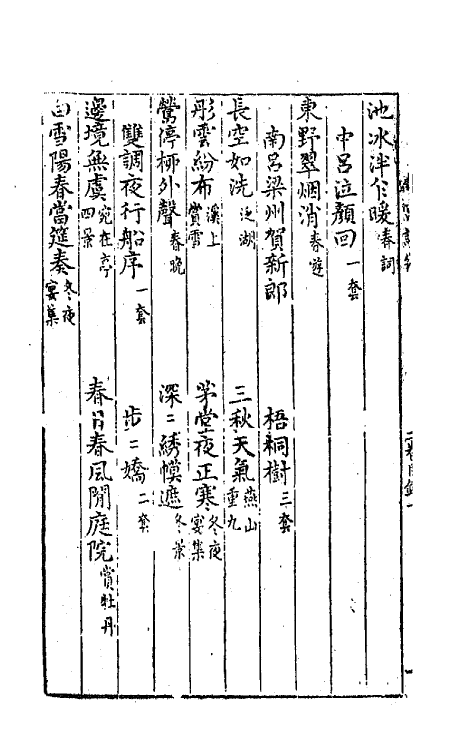 池冰泮乍暖 春詞
中呂泣顏回 一套
東野翠烟消 春遊
南呂梁州賀新郎 梧桐樹 三套
長空如洗 泛湖 三秋天氣 燕山重九
彤雲紛布 溪上賞雪 茅堂夜正寒 冬夜宴集
鶯停柳外聲 春晚 深二綉幙遮 冬景
雙調夜行船序 一套 步二嬌 二套
邊境無虞 宛在亭四景 春日春風閒庭院 賞牡丹
白雪陽春當筵奏 冬夜宴集